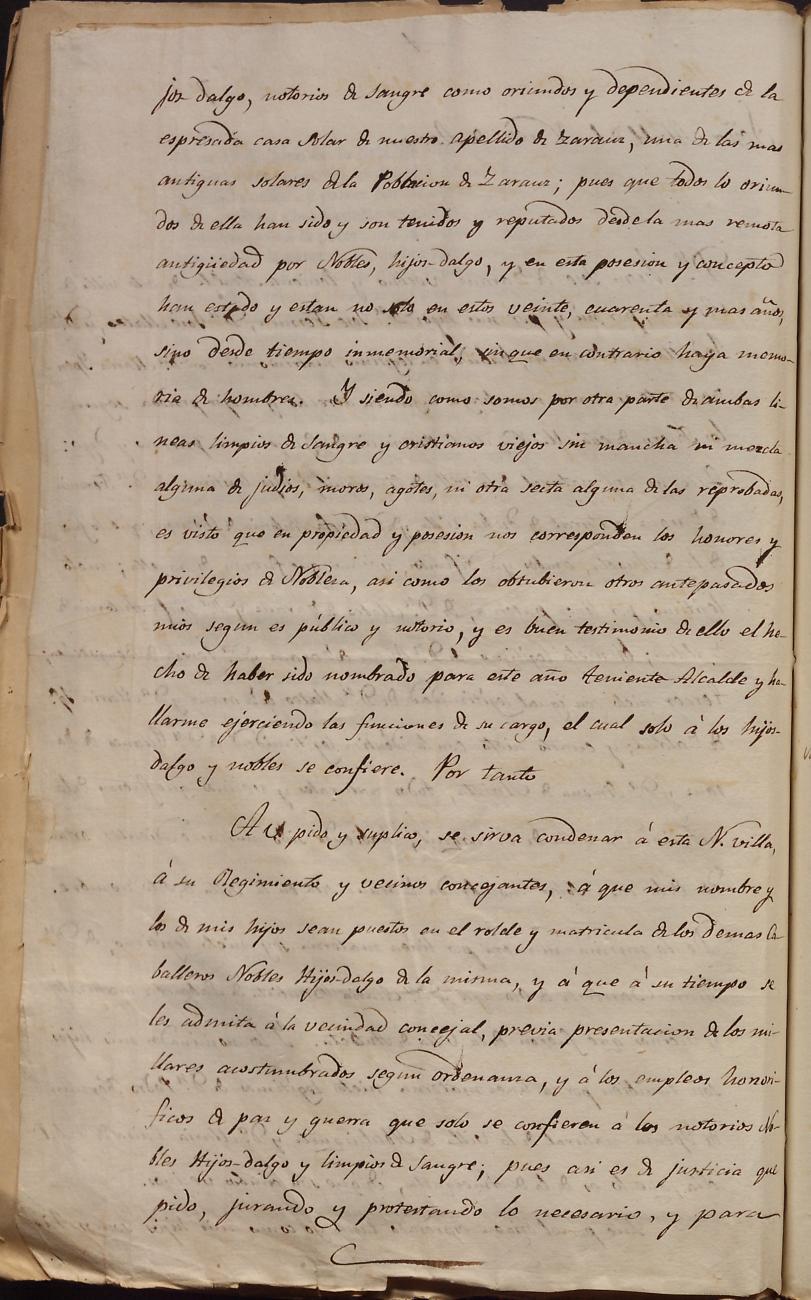 jos-dalgo, notorios de sangre como oriundos y dependientes de la
espresada casa solar de nuestro apellido de Zarauz, una de las mas
antiguas solares de la Poblacion de Zarauz; pues que todos lo oriun-
dos de ella han sido y son tenidos y reputados desde la mas remota
antigüedad por Nobles, hijos-dalgo, y en esta posesion y concepto
han estado y estan no solo en estos veinte, cuarenta y mas años,
sino desde tiempo inmemorial, sin que en contrario haya memo-
ria de hombres. Y siendo como somos por otra parte de ambas li-
neas limpios de sangre y cristianos viejos sin mancha ni mezcla
alguna de judios, moros, agotes, ni otra secta alguna de las reprobadas,
es visto que en propiedad y posesion nos corresponden los honores y
privilegios de Nobleza, asi como los obtubieron otros antepasados
mios segun es público y notorio, y es buen testimonio de ello el he-
cho de haber sido nombrado para este año teniente Alcalde y ha-
llarme ejerciendo las funciones de su cargo, el cual solo á los hijos-
dalgo y nobles se confiere. Por tanto
A V. pido y suplico, se sirva condenar á esta N. villa,
á su Regimiento y vecinos concejantes, á que mis nombre y
los de mis hijos sean puestos en el rolde y matricula de los demas Ca-
balleros Nobles Hijos-dalgo de la misma, y á que á su tiempo se
les admita á la vecindad concejal, previa presentacion de los mi-
llares acostumbrados segun ordenanza, y á los empleos honori-
ficos de paz y guerra que solo se confieren á los notorios No-
bles Hijos-dalgo y limpios de sangre; pues asi es de justicia que
pido, jurando y protestando lo necesario, y para